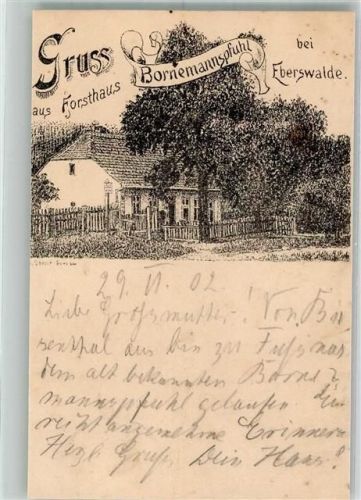 Gruss
aus Forsthaus
Bornemannspfuhl
bei
Eberswalde.
29. VI. 02
Liebe Grossmutter! Von Bie
senthal aus bin zu Fuss nach
dem alt bekannten Borne
mannspfuhl gelaufen. Eine
recht angenehme Erinnern
Herzl. Gruss Dein Hans!